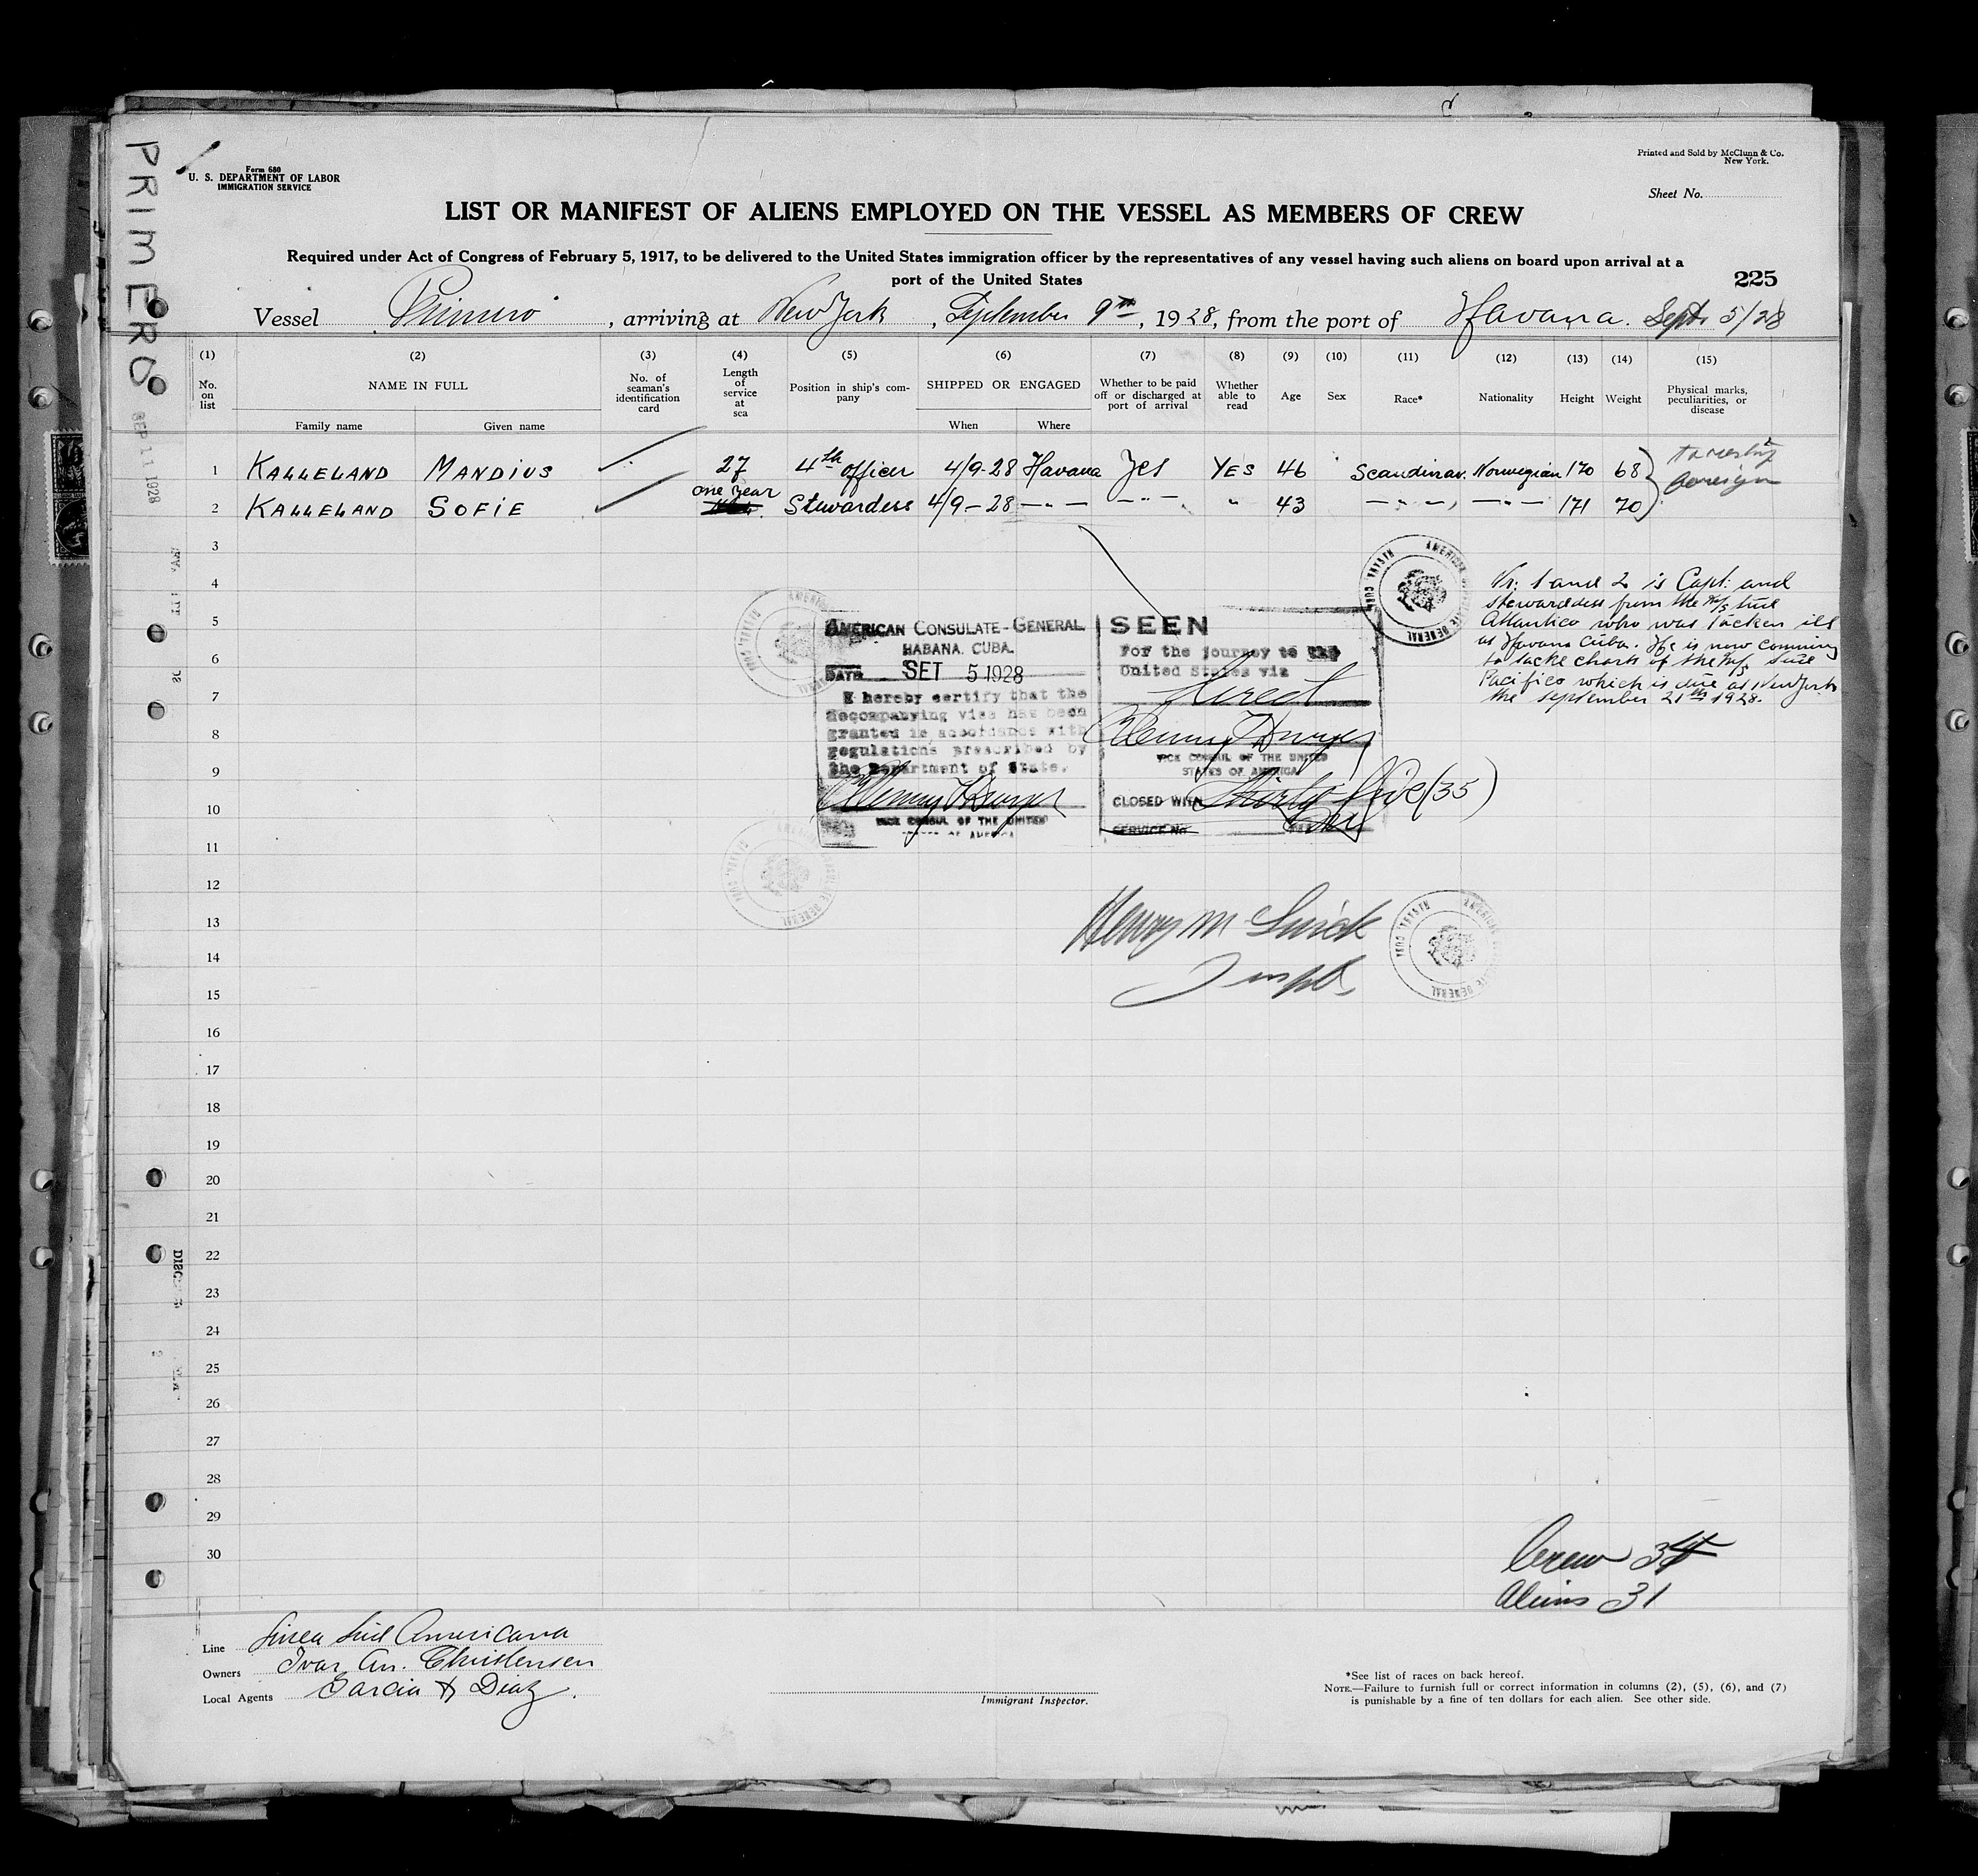 PRIMERO
SEP 11 1928
Form 680
U. S. DEPARTMENT OF LABOR
IMMIGRATION SERVICE
Printed and Sold by McClunn & Co.
New York.
Sheet No.
LIST OR MANIFEST OF ALIENS EMPLOYED ON THE VESSEL AS MEMBERS OF CREW
Required under Act of Congress of February 5, 1917, to be delivered to the United States immigration officer by the representatives of any vessel having such aliens on board upon arrival at a
port of the United States
225
Vessel Primero, arriving at New York, September 9th, 1928, from the port of Havana. Sept. 5/28
(1) (2) (3) (4) (5) (6) (7) (8) (9) (10) (11) (12) (13) (14) (15)
No. on list NAME IN FULL No. of seaman's identification card Length of service at sea Position in ship's company SHIPPED OR ENGAGED Whether to be paid off or discharged at port of arrival Whether able to read Age Sex Race* Nationality Height Weight Physical marks, peculiarities, or disease
Family name Given name When Where
1 KALLELAND MANDIUS 27 4th officer 4/9-28 Havana Yes YES 46 Scandinav. Norwegian 170 68
2 KALLELAND SOFIE one year Stewardess 4/9-28 —"— —"— " 43 —"— —"— 171 70
3
4
5
6
7
8
9
10
11
12
13
14
15
16
17
18
19
20
21
22
23
24
25
26
27
28
29
30
AMERICAN CONSULATE-GENERAL
HABANA. CUBA.
DATE SET 5 1928
I hereby certify that the
accompanying visa has been
granted in accordance with
regulations prescribed by
the Department of State.
VICE CONSUL OF THE UNITED
STATES OF AMERICA
SEEN
For the journey to the
United States via
direct
VICE CONSUL OF THE UNITED
STATES OF AMERICA
CLOSED WITH Thirty five (35)
SERVICE No.
AMERICAN CONSULATE GENERAL HABANA, CUBA
Nr: 1 and 2 is Capt: and
stewardess from the M/S Sud
Atlantico who was tacken ill
at Havana Cuba. He is now comming
to tacke charh of the M/S Sud
Pacifico which is due at New York
the september 21th 1928.
Henry M
Crew 34
Aliens 31
Line Linea Sud Americana
Owners Ivar An. Christensen
Local Agents Garcia & Diaz.
Immigrant Inspector.
*See list of races on back hereof.
NOTE.—Failure to furnish full or correct information in columns (2), (5), (6), and (7)
is punishable by a fine of ten dollars for each alien. See other side.